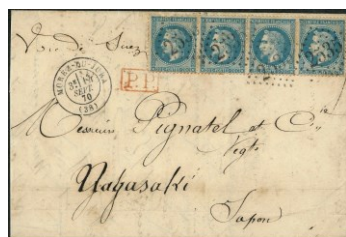 Voie de Suez
MOREZ-DU-JURA
SEPT.
70
(38)
P.P.
Messieurs Pignatel et Cie
Negts
Nagasaki
Japon